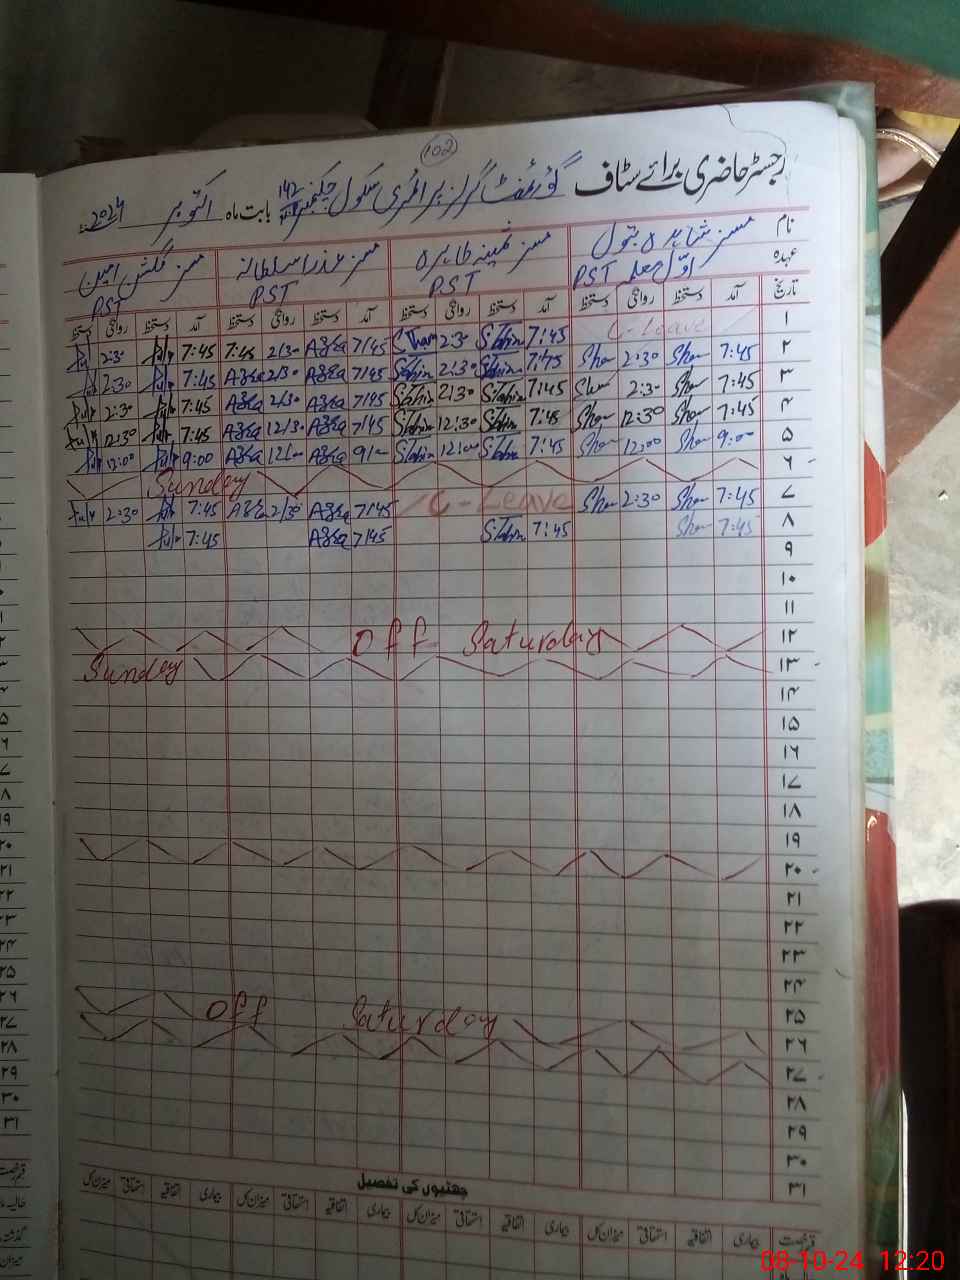 102
رجسٹر حاضری برائے سٹاف گورنمنٹ گرلز پرائمری سکول چکنمبر 142 بابت ماہ اکتوبر 2024ء
نام مسز شاہدہ بتول مسز ثمینہ طاہرہ مسز عذرا سلطانہ مسز گلشن امین
عہدہ اوّل معلمہ PST PST PST PST
تاریخ آمد دستخط روانگی دستخط آمد دستخط روانگی دستخط آمد دستخط روانگی دستخط آمد دستخط روانگی دستخط
۱ C-Leave 7:45 2:30 7/45 Azra 2/30 7:45 7:45 2:30
۲ 7:45 Sha 2:30 Sha 7:45 2:30 7/45 Azra 2/30 Azra 7:45 2:30
۳ 7:45 Sha 2:30 Sha 7:45 2:30 7/45 Azra 2/30 Azra 7:45 2:30
۴ 7:45 Sha 12:30 Sha 7:45 12:30 7/45 Azra 12/30 Azra 7:45 12:30
۵ 9:00 Sha 12:00 Sha 7:45 12:00 9/00 Azra 12/00 Azra 9:00 12:00
۶ Sunday
۷ 7:45 Sha 2:30 Sha C-Leave 7/45 Azra 2/30 Azra 7:45 2:30
۸ 7:45 Sha 7:45 7/45 Azra 7:45
۹
۱۰
۱۱
۱۲ Off Saturday
۱۳ Sunday
۱۴
۱۵
۱۶
۱۷
۱۸
۱۹
۲۰
۲۱
۲۲
۲۳
۲۴
۲۵
۲۶ Off Saturday
۲۷
۲۸
۲۹
۳۰
۳۱
چھٹیوں کی تفصیل
قسم رخصت بیماری اتفاقیہ استحقاقی میزان کل بیماری اتفاقیہ استحقاقی میزان کل بیماری اتفاقیہ استحقاقی میزان کل بیماری اتفاقیہ استحقاقی میزان کل
08-10-24 12:20